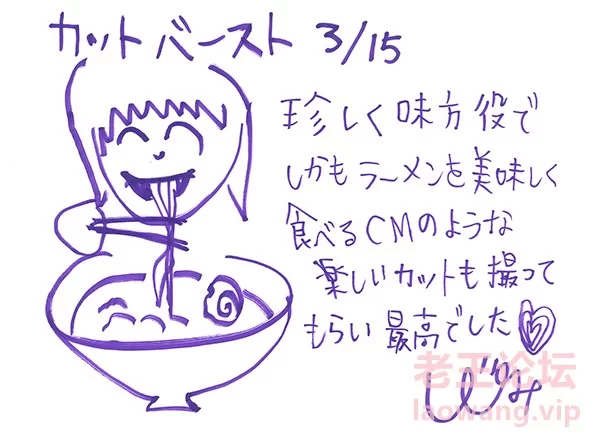 カットバースト 3/15
珍しく味方役で
しかもラーメンを美味しく
食べるCMのような
楽しいカットも撮って
もらい最高でした
老王论坛
laowang.vip